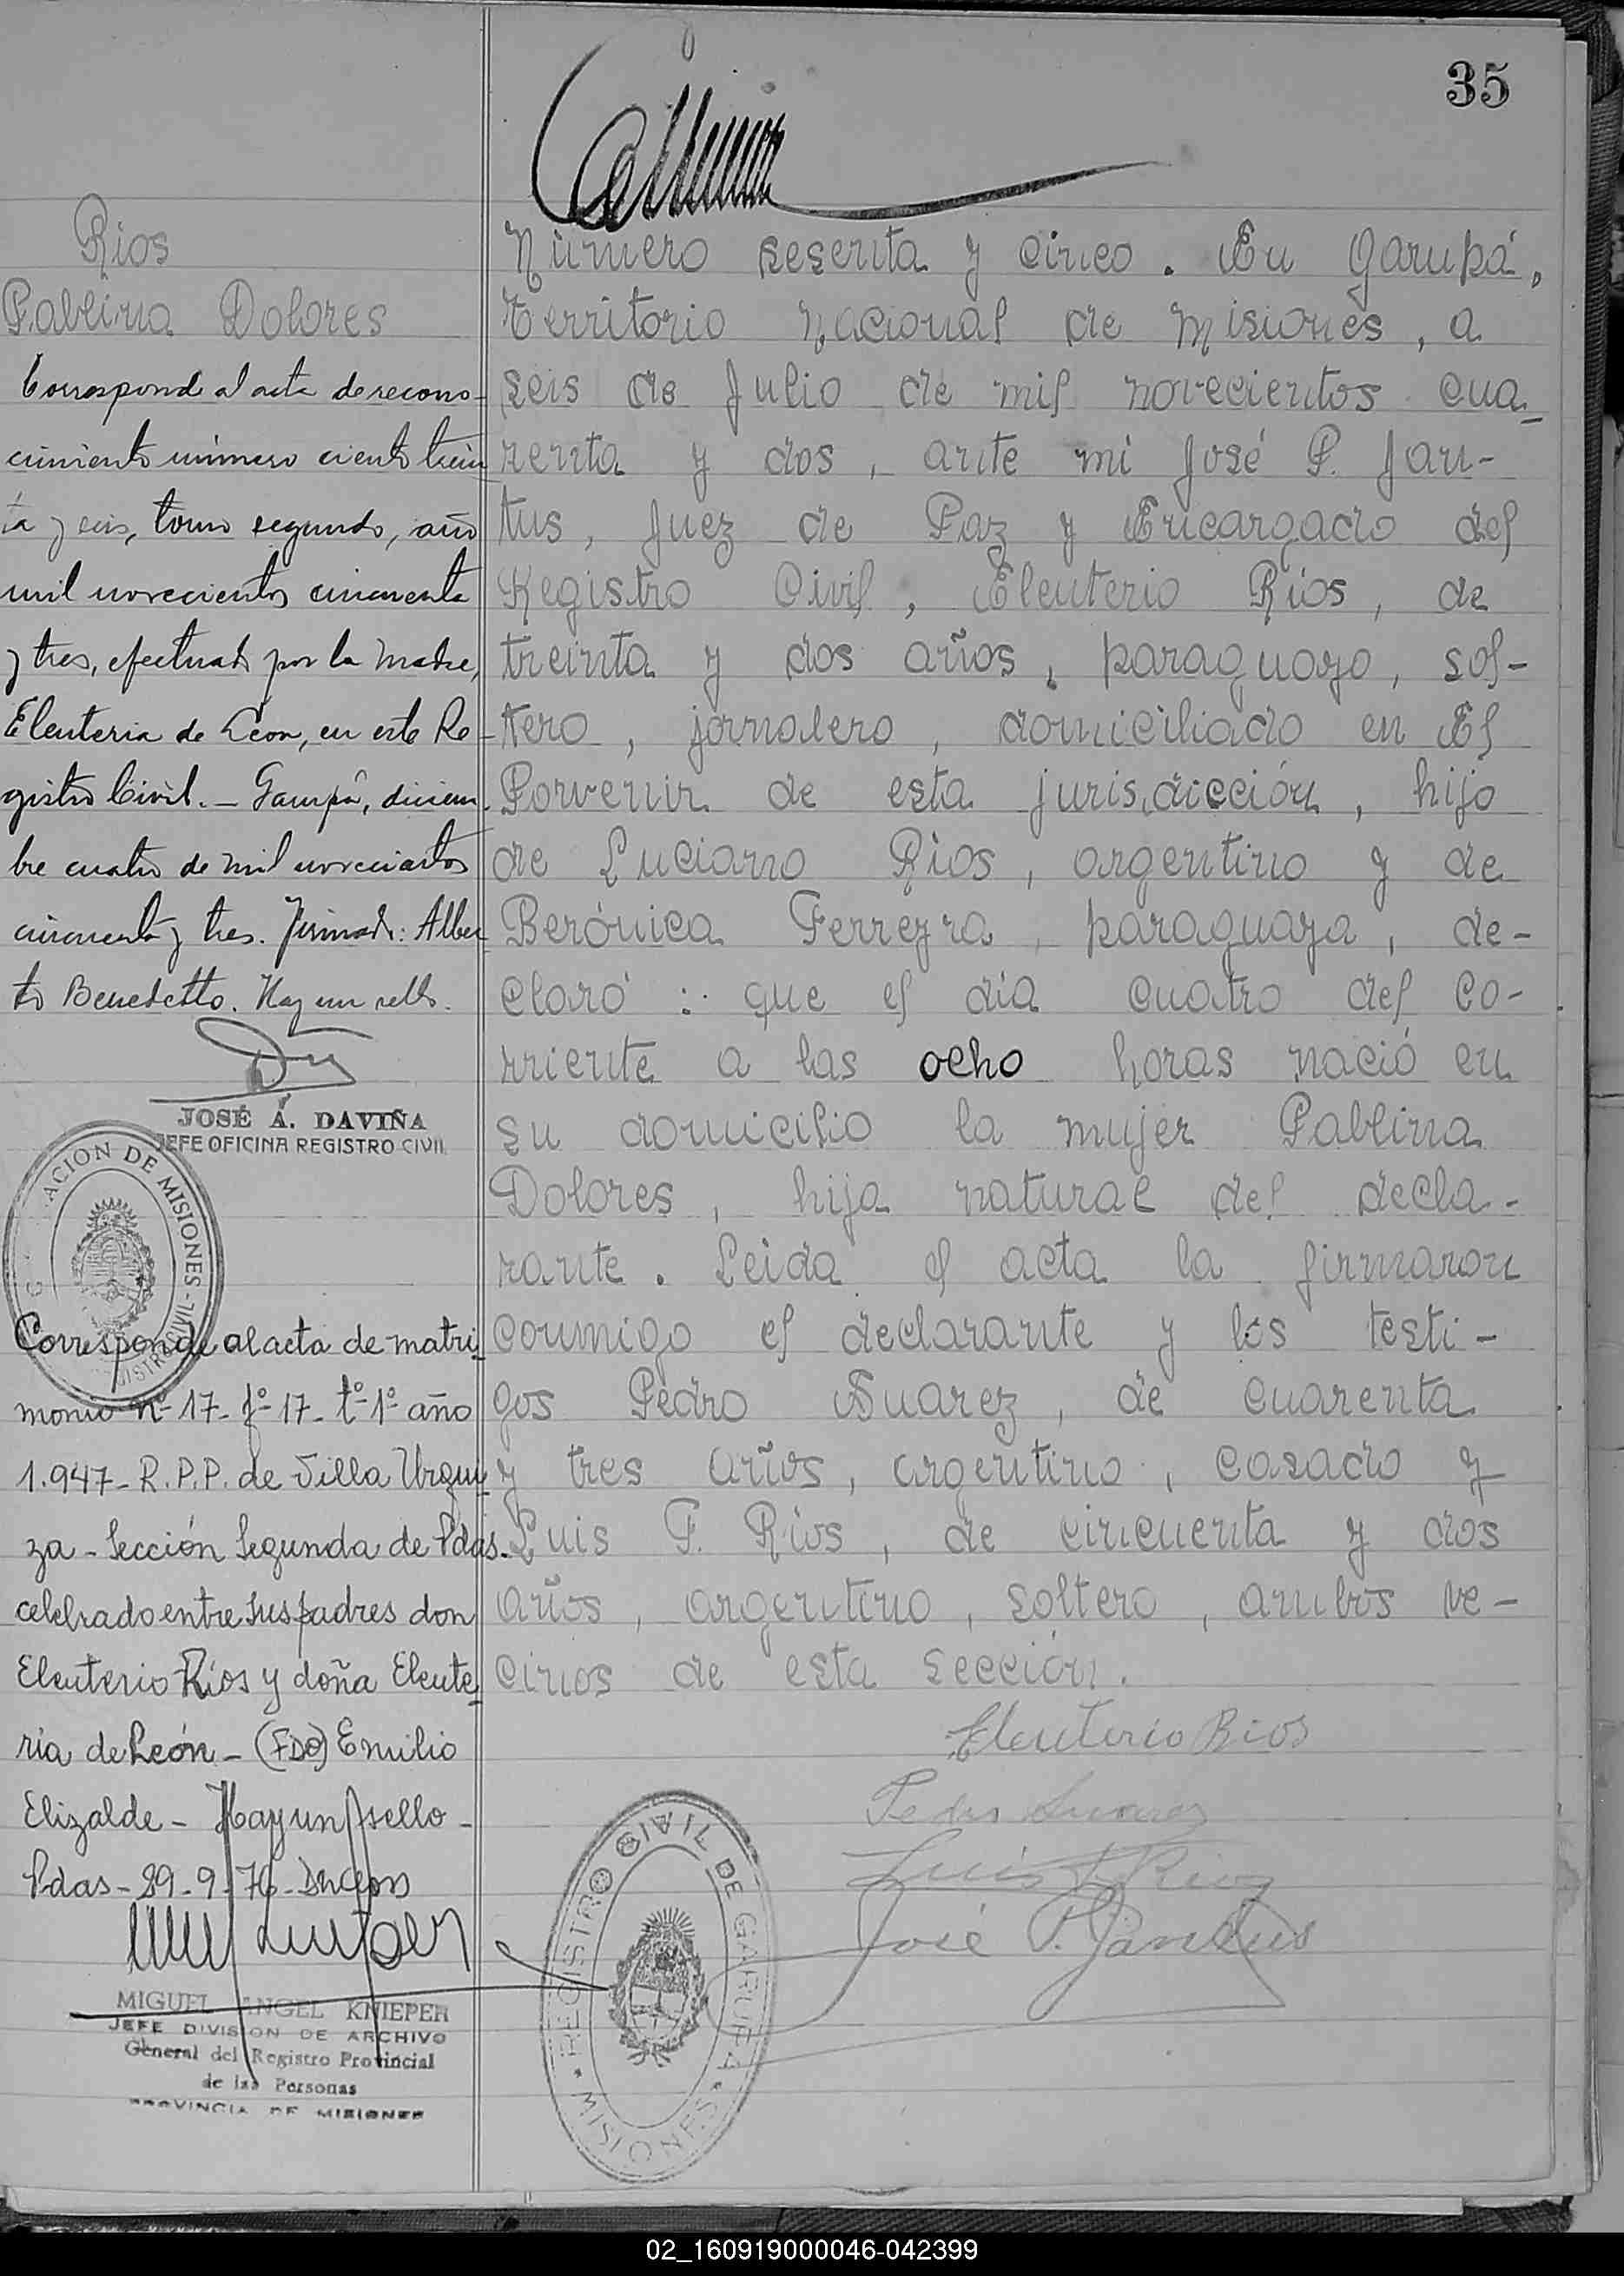 35
Rios
Pablina Dolores
Correspond al acta de recono-
cimiento número ciento trein
ta y seis, tomo segundo, año
mil novecientos cincuenta
y tres, efectuado por la madre,
Eleuteria de Leon, en este Re-
gistro Civil.- Garupá, diciem-
bre cuatro de mil novecientos
cincuenta y tres. Firmado: Alber
to Benedetto. Hay un sello.
JOSÉ A. DAVIÑA
JEFE OFICINA REGISTRO CIVIL
ACION DE MISIONES
Corresponde al acta de matri-
monio Nº 17- fº 17- tº 1º año
1.947- R.P.P. de Villa Urqui-
za - Sección Segunda de Pdas.
celebrado entre sus padres don
Eleuterio Ríos y doña Eleute-
ria de León - (FDO) Emilio
Elizalde - Hay un sello -
Pdas - 29-9-76-
MIGUEL ANGEL KNIEPER
JEFE DIVISION DE ARCHIVO
General del Registro Provincial
de las Personas
PROVINCIA DE MISIONES
Número sesenta y cinco. En Garupá,
Territorio Nacional de Misiones, a
seis de Julio de mil novecientos cua-
renta y dos, ante mi José P. Jan-
tus, Juez de Paz y Encargado del
Registro Civil, Eleuterio Rios, de
treinta y dos años, paraguayo, sol-
tero, jornalero, domiciliado en El
Porvenir de esta jurisdicción, hijo
de Luciano Rios, argentino y de
Berónica Ferreyra, paraguaya, de-
claró: que el dia cuatro del co-
rriente a las ocho horas nació en
su domicilio la mujer Pablina
Dolores, hija natural del decla-
rante. Leida el acta la firmaron
conmigo el declarante y los testi-
gos Pedro Suarez, de cuarenta
y tres años, argentino, casado y
Luis F. Rios, de cincuenta y dos
años, argentino, soltero, ambos ve-
cinos de esta sección.
Eleuterio Rios
Pedro Suarez
Luis F. Rios
José P. Jantus
REGISTRO CIVIL DE GARUPA
* MISIONES *
02_160919000046-042399